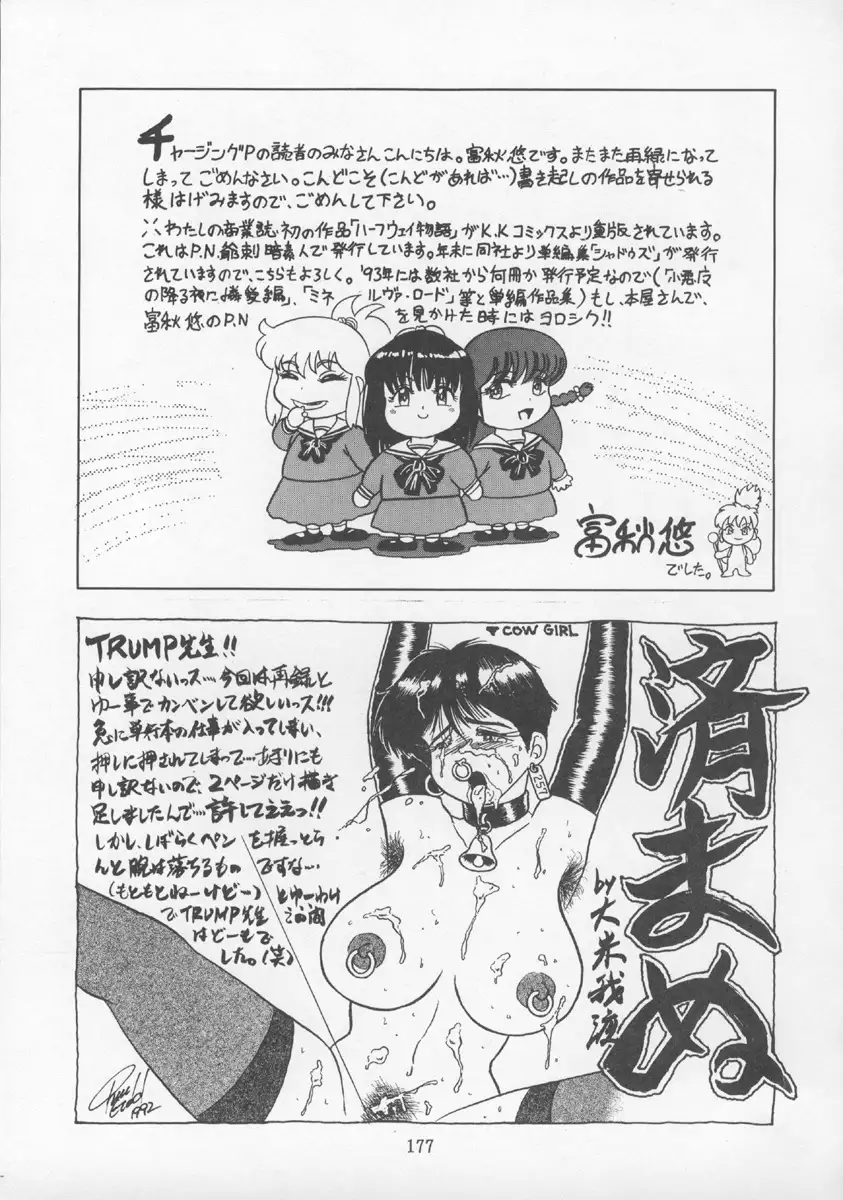 チャージングPの読者のみなさんこんにちは。富秋悠です。またまた再録になって
しまって ごめんなさい。こんどこそ(こんどがあれば…)書き起しの作品を寄せられる
様はげみますので、ごめんして下さい。
※わたしの商業誌初の作品「ハーフウェイ物語」がK.Kコミックスより重版されています。
これはP.N.爺刺 暗素人で発行しています。年末に同社より単編集「シャドウズ」が発行
されていますので、こちらもよろしく。'93年には数社から何冊か発行予定なので(「小悪
の降る夜に 編」、「ミネルヴァ・ロード」等と単編作品集)もし、本屋さんで、
富秋悠のP.N を見かけた時にはヨロシク!!
富秋悠
でした。
TRUMP先生!!
申し訳ないっス…今回は再録と
ゆー事でカンベンして欲しいっス!!!
急に単行本の仕事が入ってしまい、
押しに押されてしまって…あまりにも
申し訳ないので、2ページだけ描き
足しましたんで…許してええっ!!
しかし、しばらくペンを握っとら
んと腕は落ちるものですな…
(もともとねーけど…)とゆーわけ
でTRUMP先生この間
はどーもで
した。(笑)
▼COW GIRL
257
済まぬ
by大米我渡
1992
177